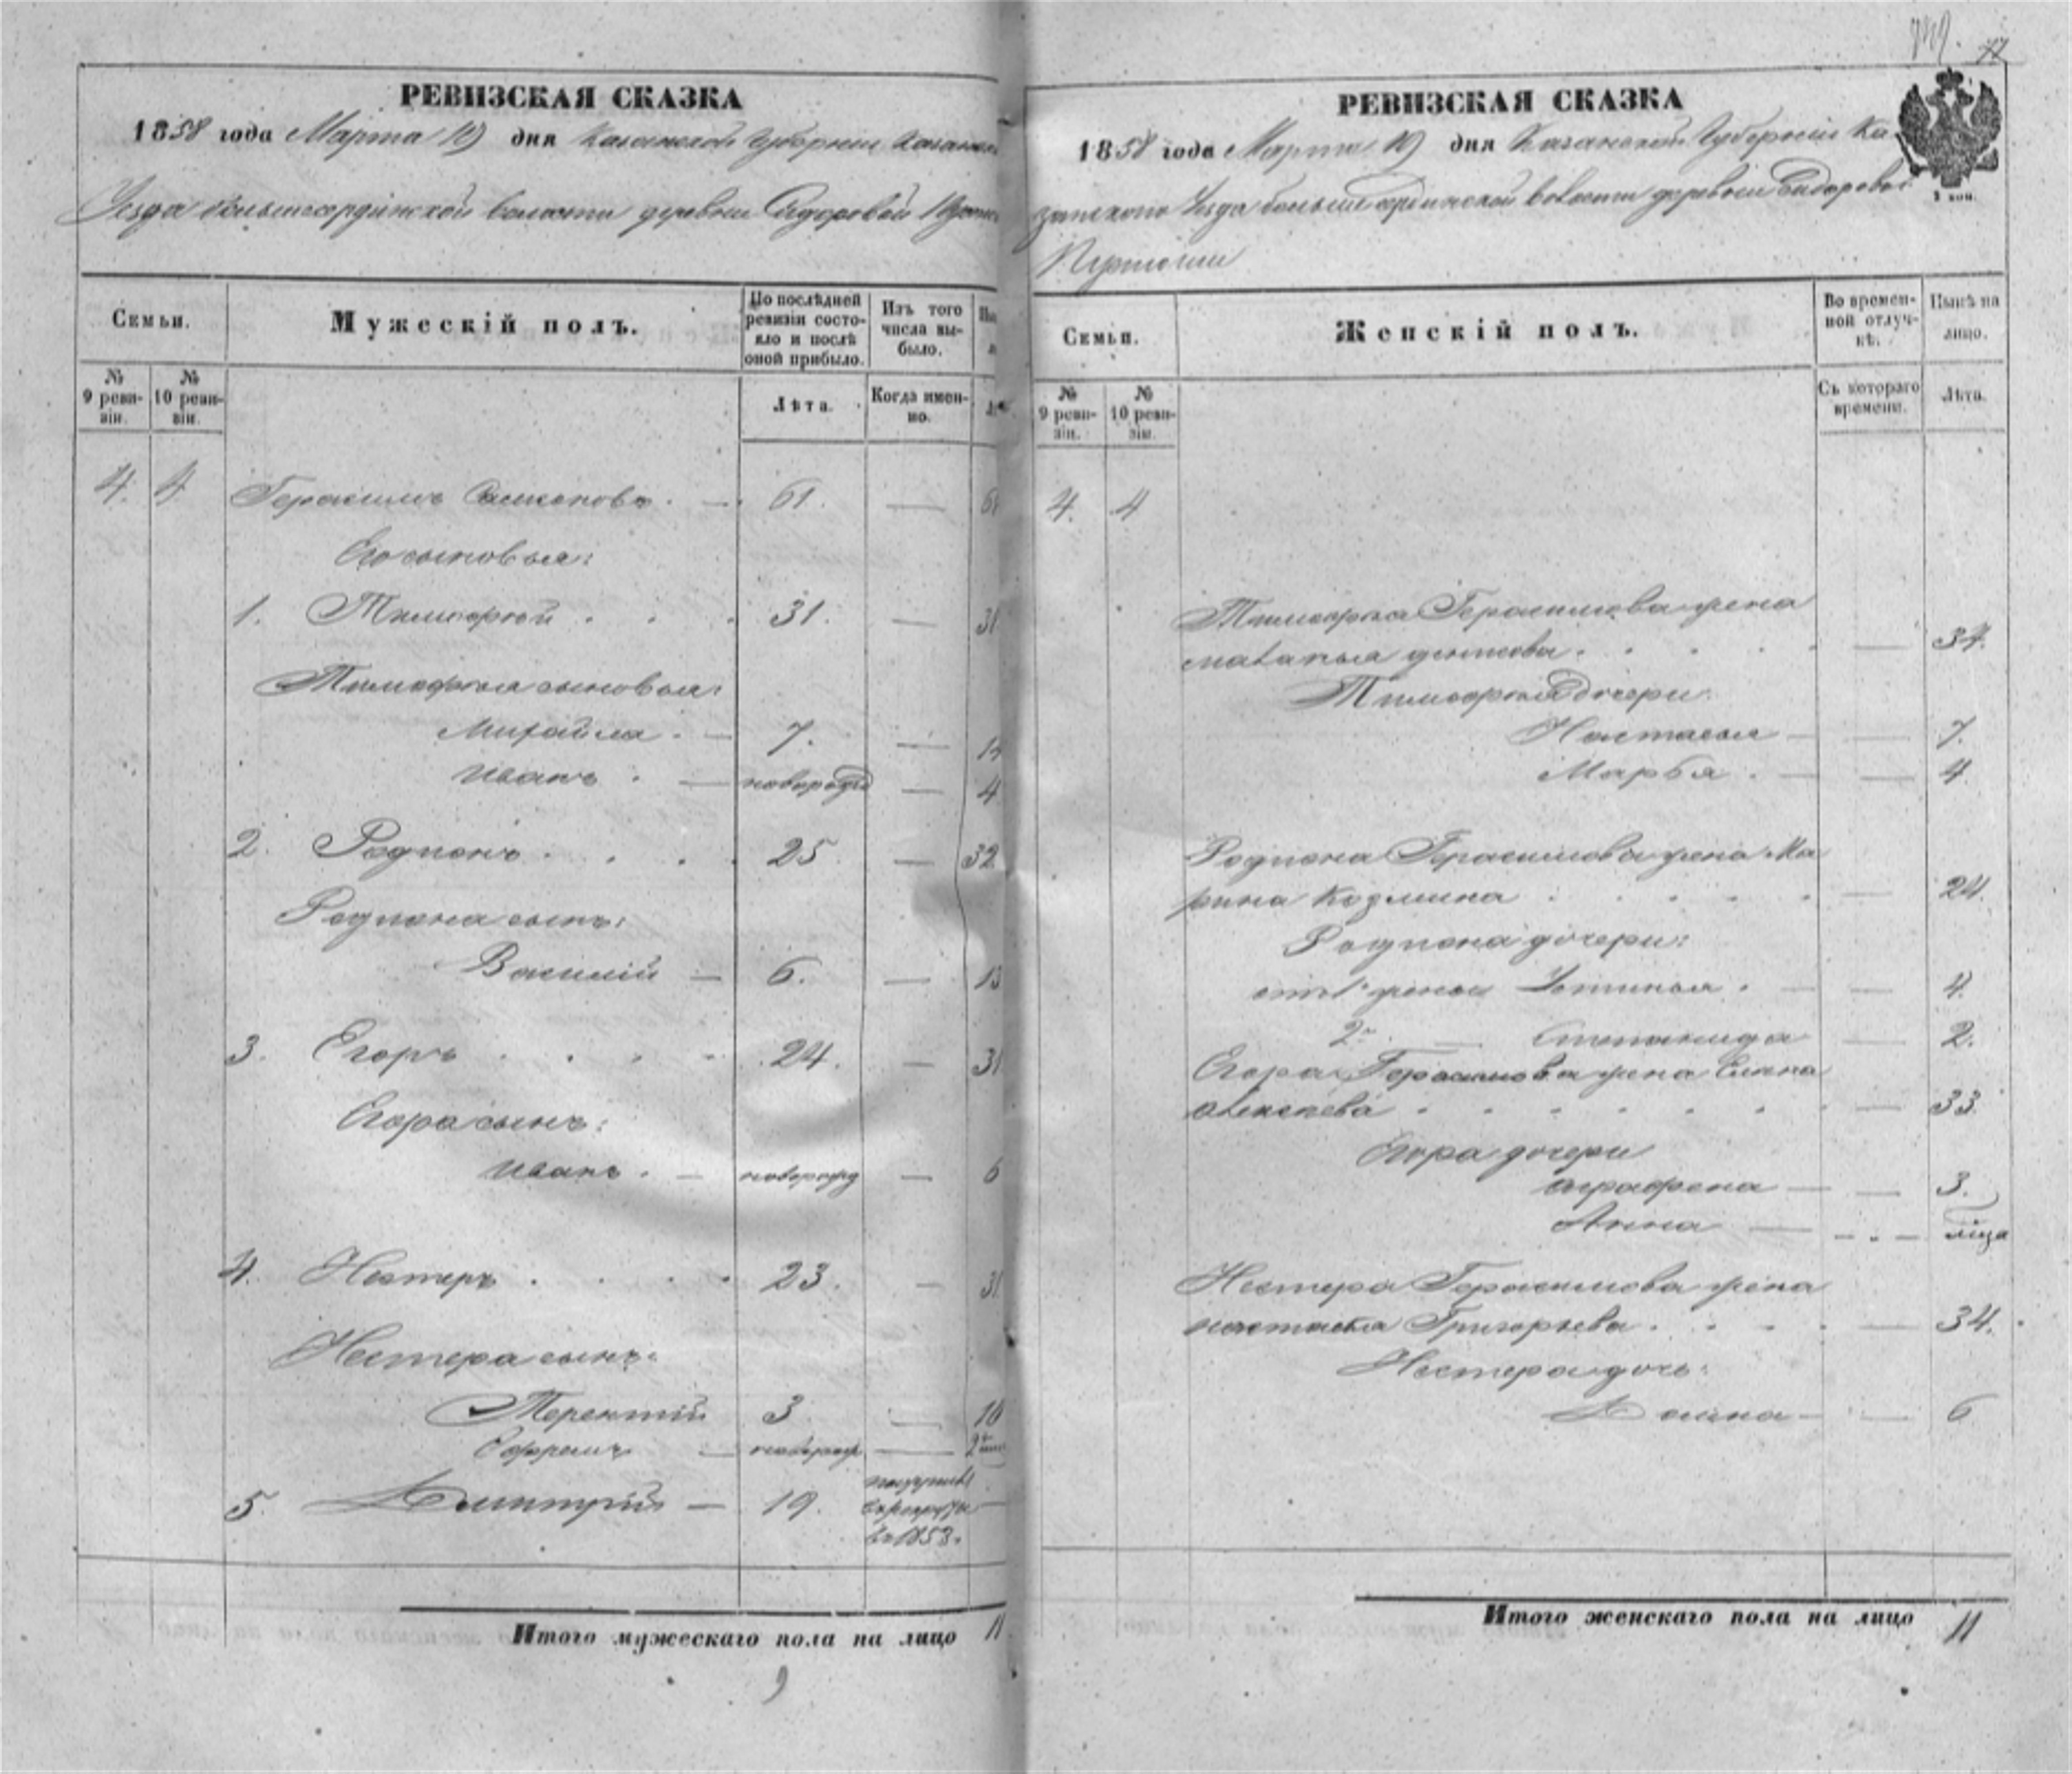 РЕВИЗСКАЯ СКАЗКА
1858 года Марта 19 дня Казанской Губернии Казанска
Уезда Большесердинской волости деревни Сидоровой
Семьи.
Мужескій полъ.
По послѣдней ревизіи состояло и послѣ оной прибыло.
Изъ того числа выбыло.
№ 9 ревизіи.
№ 10 ревизіи.
Лѣта.
Когда именно.
4. 4 Герасимъ Симоновъ. — 61. — 61
Его сыновья:
1. Тимофей . . . 31. — 31
Тимофея сыновья:
Михайла . — 7. — 14
Иванъ . — новорожд — 4
2. Родионъ . . . 25 — 32
Родиона сынъ:
Василій — 6. — 13
3. Егоръ . . . . 24. — 31
Егора сынъ:
Иванъ . — новорожд — 6
4. Нестеръ . . . . 23. — 31
Нестера сынъ:
Терентій 3 — 10
Ефремъ — новорожд —
5. Дмитрій — 19.
въ рекруты
въ 1853.
Итого мужескаго пола на лицо 11
9
72
РЕВИЗСКАЯ СКАЗКА
1858 года Марта 19 дня Казанской Губерніи Ка-
занскаго Уезда Большесердинской волости деревни Сидоровой
Семьи.
Женскій полъ.
Во временной отлучкѣ.
Нынѣ на лицо.
№ 9 ревизіи.
№ 10 ревизіи.
Съ котораго времени.
Лѣта.
4. 4
Тимофея Герасимова жена
Маланья . . . — 34.
Тимофея дочери:
Настасья — — 7.
Марья . — — 4.
Родиона Герасимова жена Ма
рина Козмина . . . . . — 24.
Родиона дочери:
отъ 1й жены Устинья . — — 4.
2й — Степанида — 2.
Егора Герасимова жена Елена
Алексеева . . . . . . . — 33.
Егора дочери
Аграфена — — 3.
Анна — - . —
Нестера Герасимова жена
Настасья Григорьева . . . . — 34.
Нестера дочь:
Домна — — 6
Итого женскаго пола на лицо 11